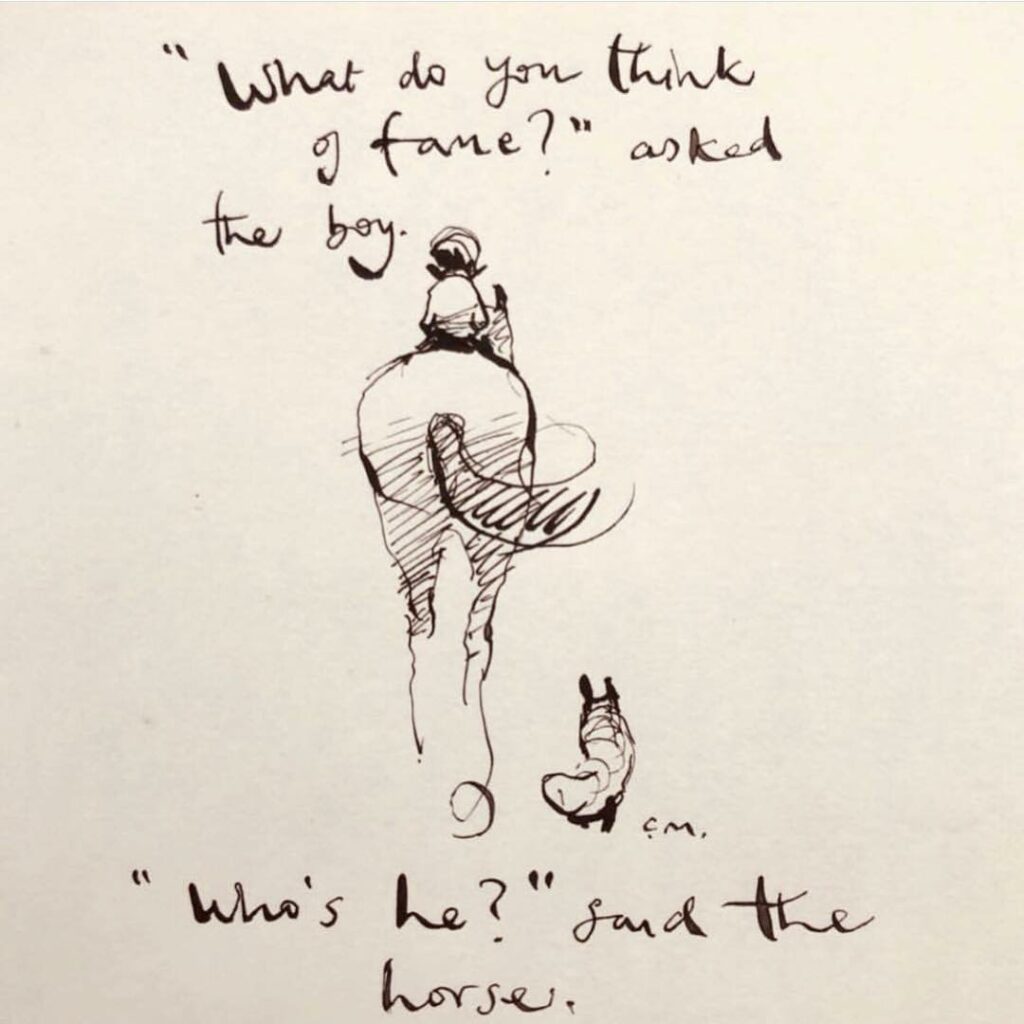 "What do you think
of fame?" asked
the boy.
C.M.
"Who's he?" said the
horse.